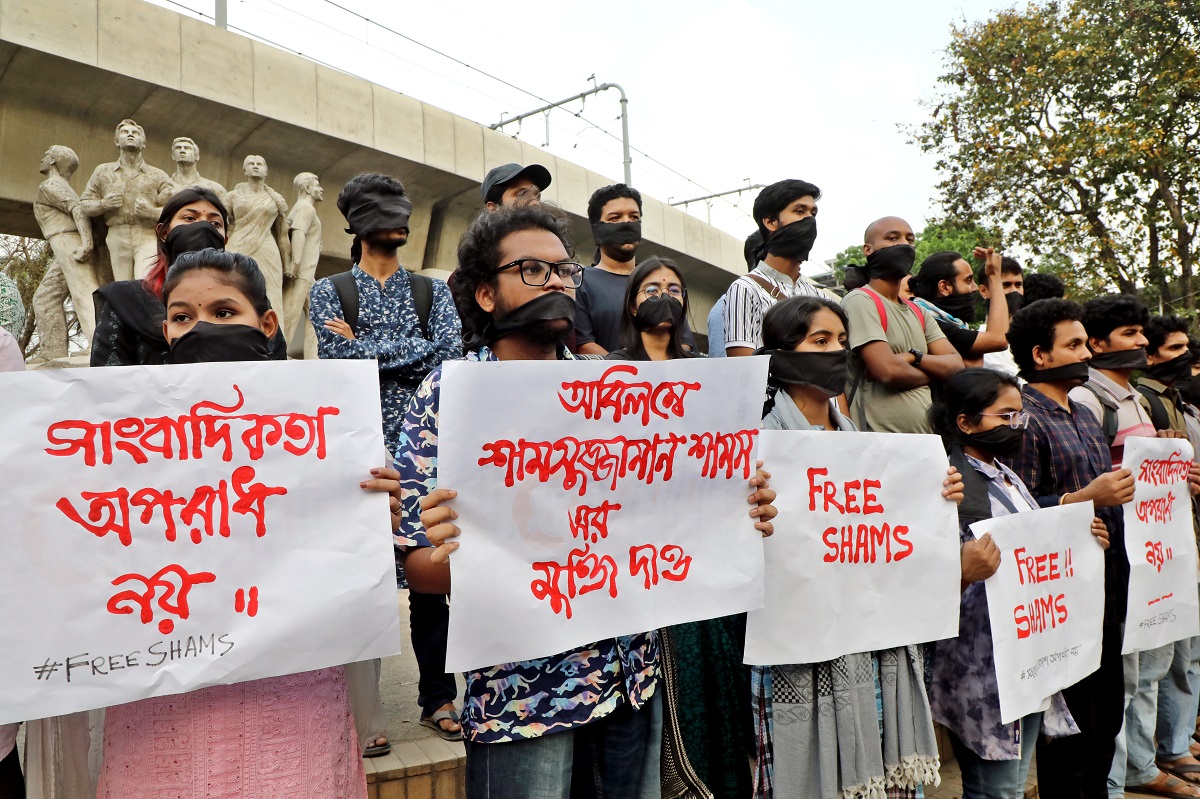 সাংবাদিকতা
অপরাধ
নয় ॥
#FREE SHAMS
অবিলম্বে
শামসুজ্জামান শামস
এর
মুক্তি দাও
FREE
SHAMS
FREE !!
SHAMS
সাংবাদিকতা
অপরাধ
নয় ॥
#FREE SHAMS